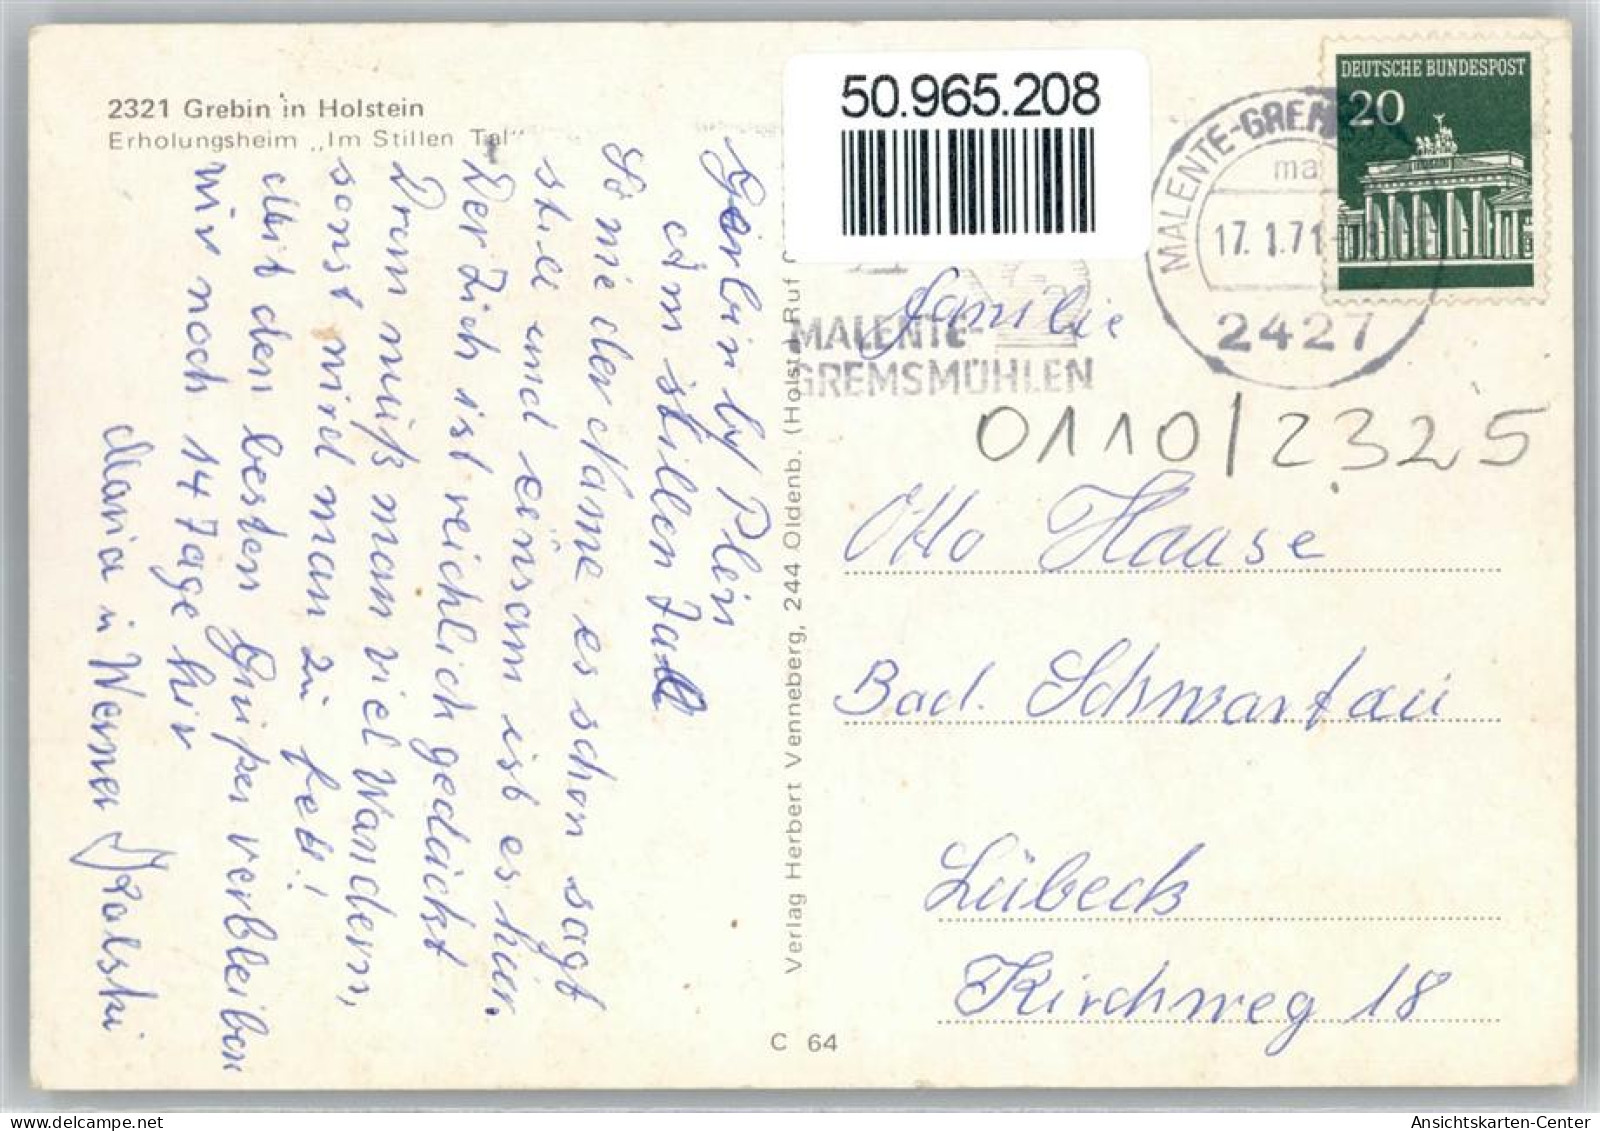 2321 Grebin in Holstein
Erholungsheim „Im Stillen Tal"
Grebin by Plön
Am stillen Tall
So wie der Name es schon sagt
still und einsam ist es hier.
Der Tich ist reichlich gedeckt
Drum muß man viel Wandern,
sonst wird man zu fett!
Mit den besten Grüßen verbleiben
wir noch 14 Tage hir
Maria u Werner
Verlag Herbert Venneberg, 244 Oldenb. (Holst.) Ruf
C 64
50.965.208
MALENTE-
GREMSMÜHLEN
MALENTE-GREM
ma
17.1.71
2427
DEUTSCHE BUNDESPOST
20
Familie
0110/2325
Otto Haase
Bad. Schwartau
Lübeck
Kirchweg 18
Ansichtskarten-Center